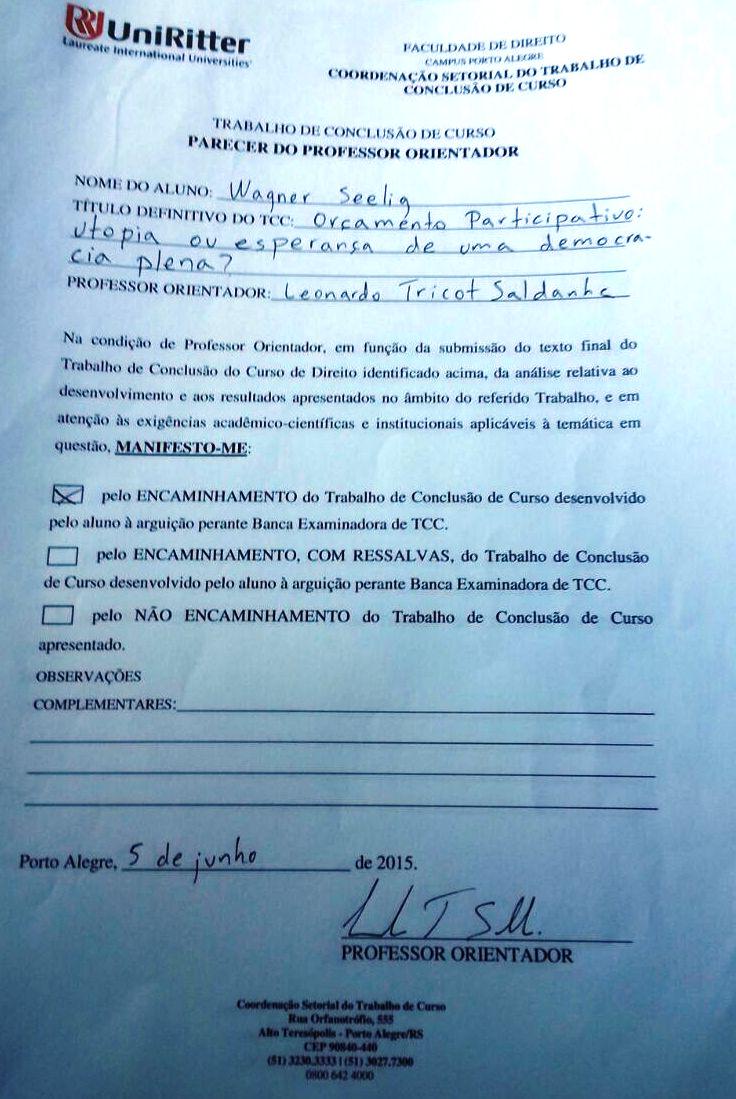 UniRitter
Laureate International Universities
FACULDADE DE DIREITO
CAMPUS PORTO ALEGRE
COORDENAÇÃO SETORIAL DO TRABALHO DE
CONCLUSÃO DE CURSO
TRABALHO DE CONCLUSÃO DE CURSO
PARECER DO PROFESSOR ORIENTADOR
NOME DO ALUNO: Wagner Seelig
TÍTULO DEFINITIVO DO TCC: Orçamento Participativo:
utopia ou esperança de uma democra-
cia plena?
PROFESSOR ORIENTADOR: Leonardo Tricot Saldanha
Na condição de Professor Orientador, em função da submissão do texto final do
Trabalho de Conclusão do Curso de Direito identificado acima, da análise relativa ao
desenvolvimento e aos resultados apresentados no âmbito do referido Trabalho, e em
atenção às exigências acadêmico-científicas e institucionais aplicáveis à temática em
questão, MANIFESTO-ME:
pelo ENCAMINHAMENTO do Trabalho de Conclusão de Curso desenvolvido
pelo aluno à arguição perante Banca Examinadora de TCC.
pelo ENCAMINHAMENTO, COM RESSALVAS, do Trabalho de Conclusão
de Curso desenvolvido pelo aluno à arguição perante Banca Examinadora de TCC.
pelo NÃO ENCAMINHAMENTO do Trabalho de Conclusão de Curso
apresentado.
OBSERVAÇÕES
COMPLEMENTARES:
Porto Alegre, 5 de junho de 2015.
PROFESSOR ORIENTADOR
Coordenação Setorial do Trabalho de Curso
Rua Orfanotrófio, 555
Alto Teresópolis - Porto Alegre/RS
CEP 90840-440
(51) 3230.3333 | (51) 3027.7300
0800 642 4000